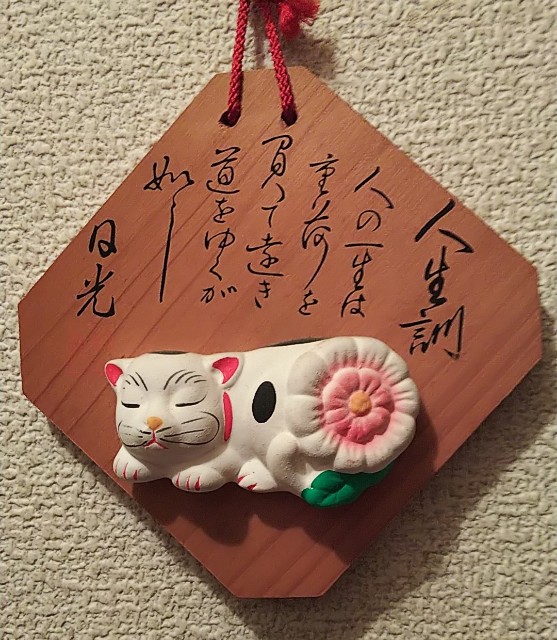 人生訓
人の一生は
重荷を
負って遠き
道をゆくが
如し
日光